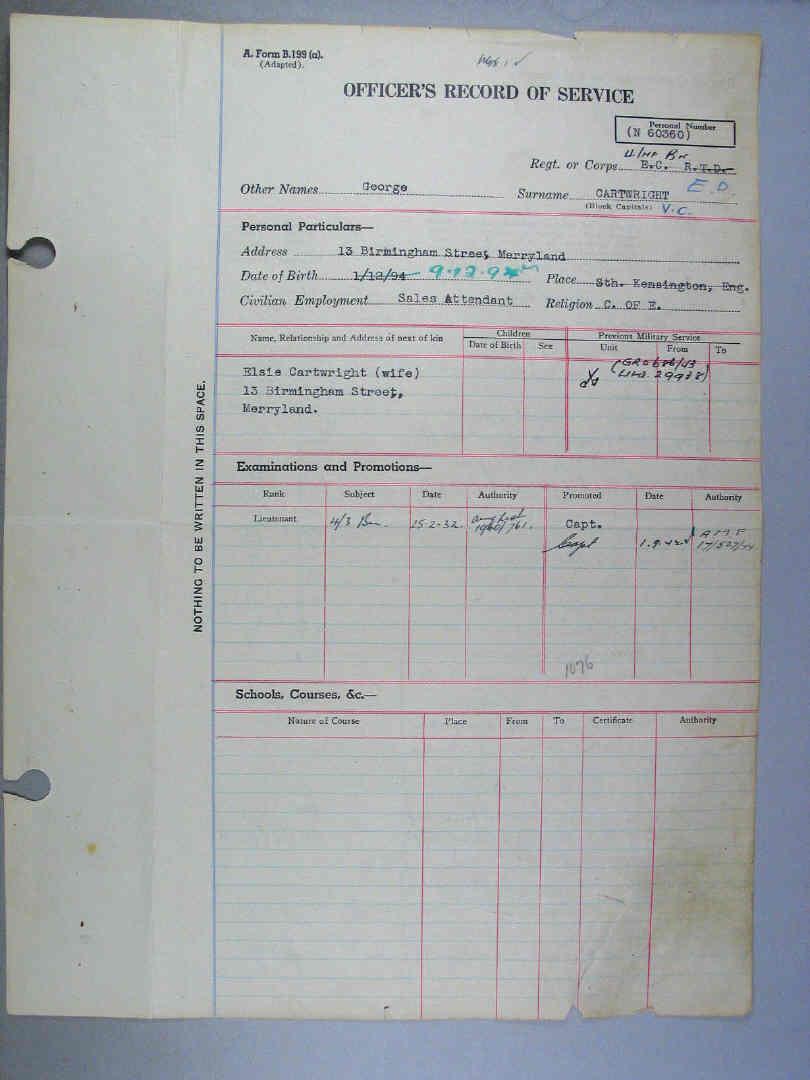 A. Form B.199 (a).
(Adapted).
OFFICER'S RECORD OF SERVICE
Personal Number
(N 60360)
Regt. or Corps E.C. R.T.D.
Other Names George Surname CARTWRIGHT E.D.
(Block Capitals) V.C.
Personal Particulars—
Address 13 Birmingham Street, Merryland
Date of Birth 1/12/94 9.12.94 Place Sth. Kensington, Eng.
Civilian Employment Sales Attendant Religion C. OF E.
Name, Relationship and Address of next of kin Children Previous Military Service
Date of Birth Sex Unit From To
Elsie Cartwright (wife)
13 Birmingham Street,
Merryland.
NOTHING TO BE WRITTEN IN THIS SPACE.
Examinations and Promotions—
Rank Subject Date Authority Promoted Date Authority
Lieutenant 25-2-32. Capt.
Capt
1076
Schools, Courses, &c.—
Nature of Course Place From To Certificate Authority